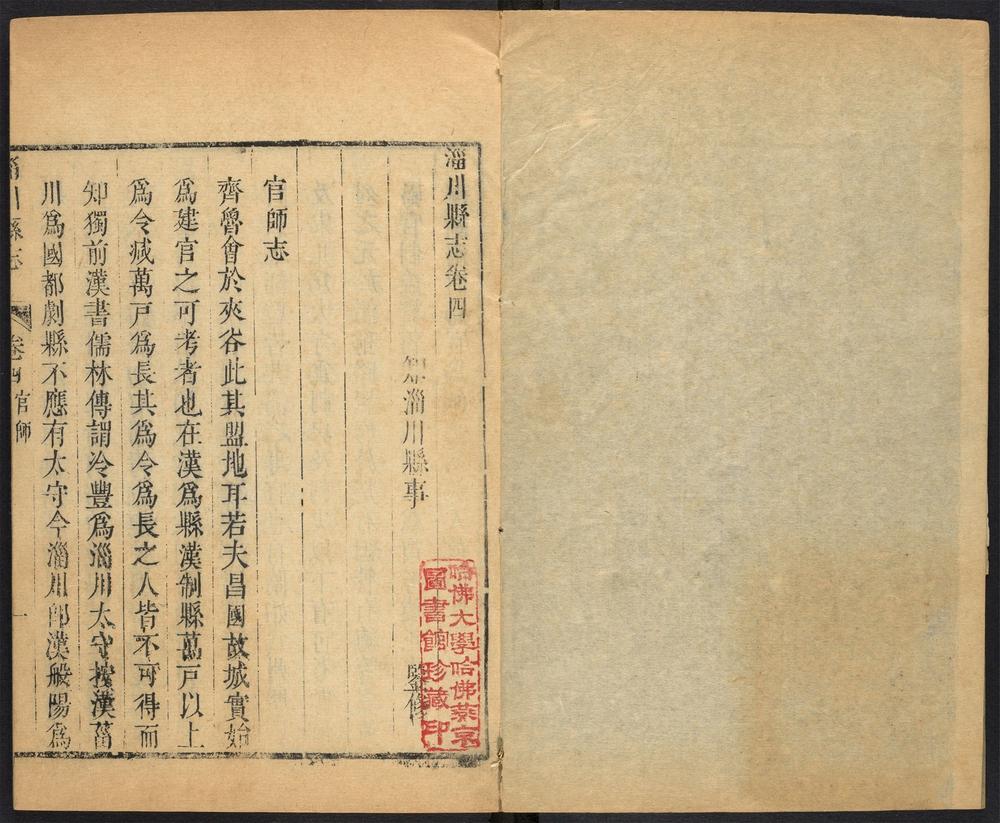 淄川縣志卷四
知淄川縣事
監修
哈佛大學哈佛燕京
圖書館珍藏印
官師志
齊魯會於夾谷此其盟地耳若夫昌國故城實始
爲建官之可考者也在漢爲縣漢制縣萬戸以上
爲令减萬戸爲長其爲令爲長之人皆不可得而
知獨前漢書儒林傳謂冷豐爲淄川太守按漢菑
川爲國都劇縣不應有太守今淄川卽漢般陽爲
淄川縣志
卷四官師
一